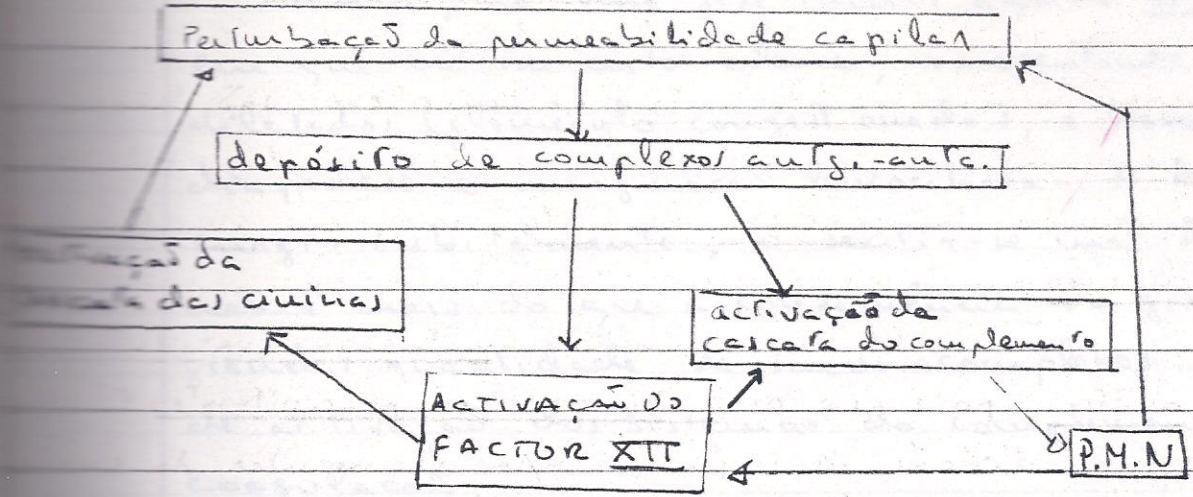 Perturbação da permeabilidade capilar
depósito de complexos antg.-antc.
da
das cininas
activação da
cascata do complemento
ACTIVAÇÃO DO
FACTOR XII
P.M.N